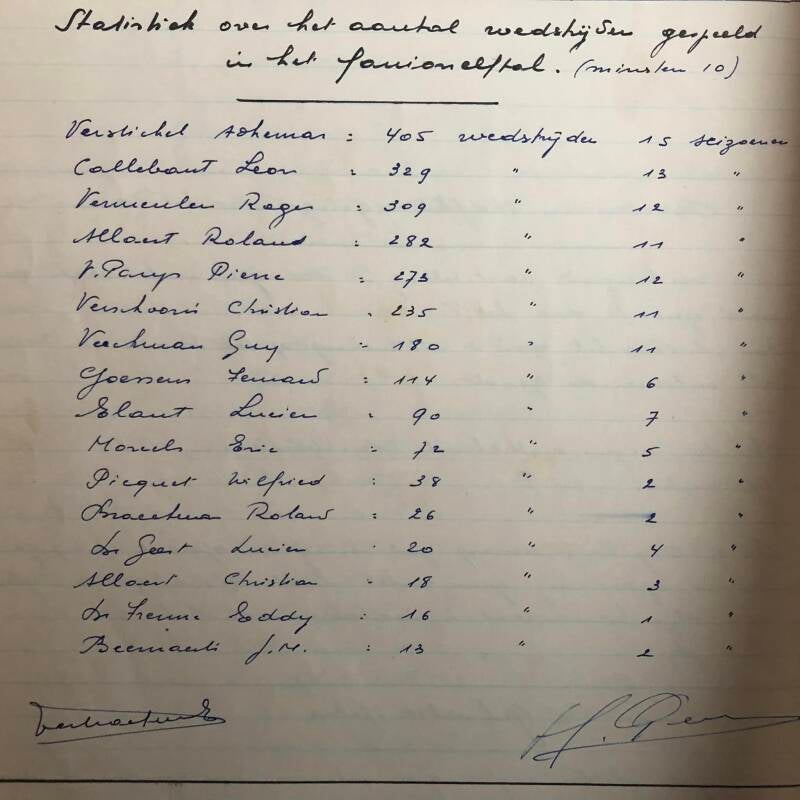 Statistiek over het aantal wedstrijden gespeeld
in het fanionelftal. (minsten 10)
Verstichel Adhemar : 405 wedstrijden 15 seizoenen
Callebaut Leon : 329 " 13 "
Vermeulen Roger : 309 " 12 "
Allaert Roland : 282 " 11 "
V. Parys Pierre : 273 " 12 "
Verschooris Christian : 235 " 11 "
Veeckman Guy : 180 " 11 "
Goessens Fernand : 114 " 6 "
Elaut Lucien : 90 " 7 "
Morels Eric : 72 " 5 "
Picquet Wilfried : 38 " 2 "
Braeckman Roland : 26 " 2 "
De Geest Lucien : 20 " 4 "
Allaert Christian : 18 " 3 "
De Frenne Eddy : 16 " 1 "
Beernaert J.M. : 13 " 2 "